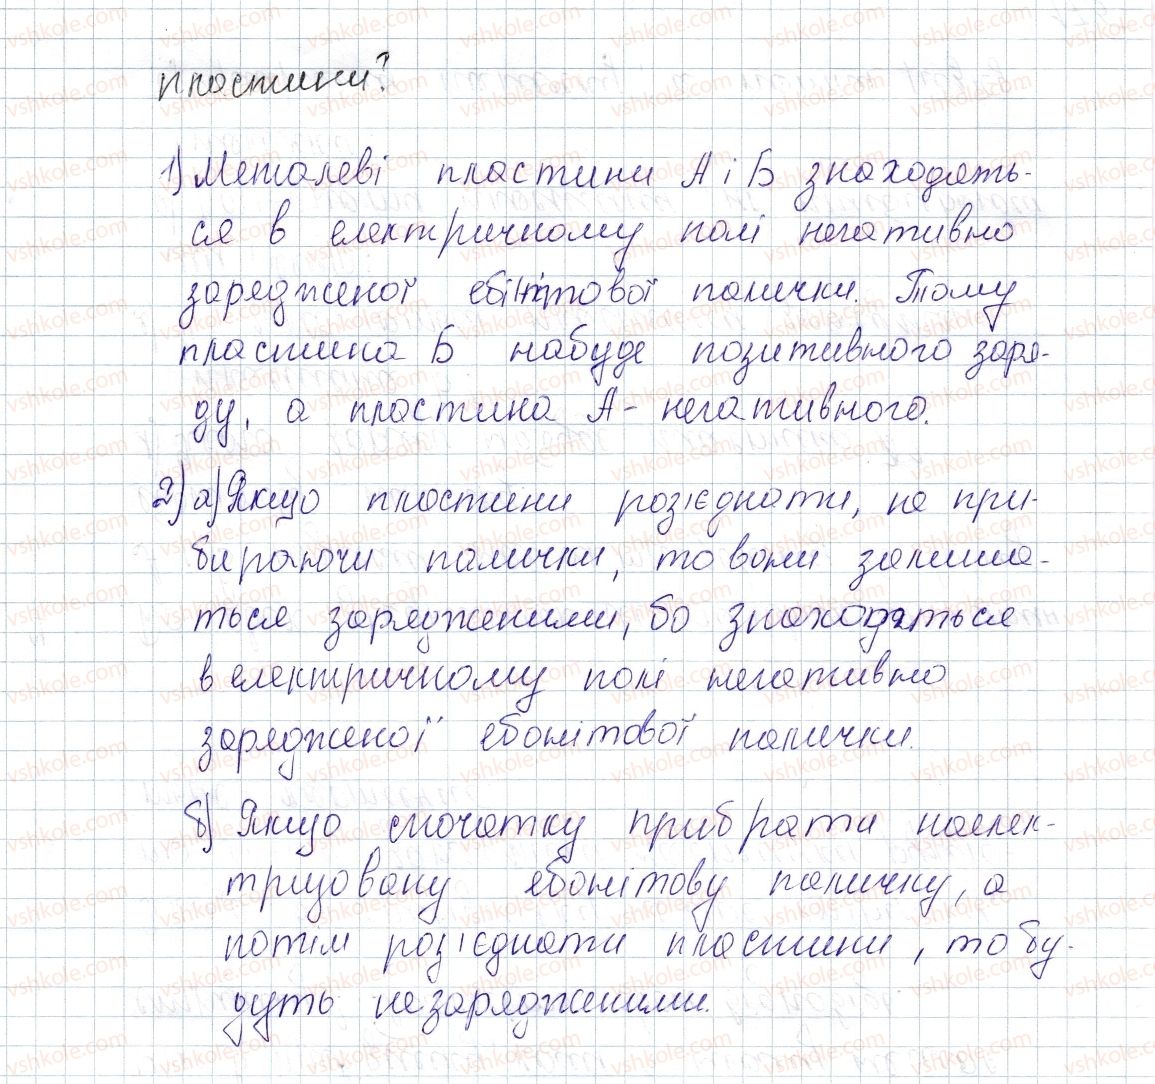 пластини?
1) Металеві пластини А і Б знаходять-
ся в електричному полі негативно
зарядженої палички. Тому
пластина Б набуде позитивного заря-
ду, а пластина А - негативного.
2) а) Якщо пластини роз'єднати, не при-
бираючи палички, то вони залиша-
ться зарядженими, бо знаходяться
в електричному полі негативно
зарядженої ебонітової палички.
б) Якщо спочатку прибрати наелек-
тризовану ебонітову паличку, а
потім роз'єднати пластини, то бу-
дуть незарядженими.